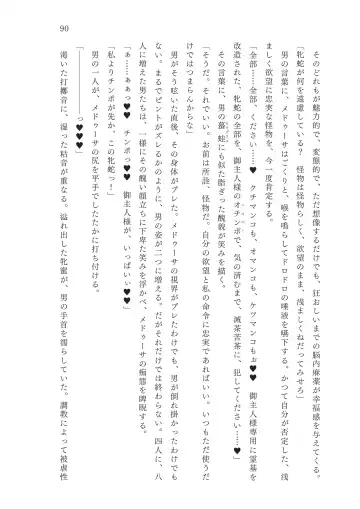 90
そのどれもが魅力的で、変態的で、ただ想像するだけでも、狂おしいまでの脳内麻薬が幸福感を与えてくる。
「牝蛇が何を遠慮している？　怪物は怪物らしく、欲望のまま、浅ましくねだってみせろ」
男の言葉に、メドゥーサはごくりと、喉を鳴らしてドロドロの唾液を嚥下する。かつて自分が否定した、浅
ましく欲望に忠実な怪物を、今一度肯定する。
「全部……全部、ください……♥　クチマンコも、オマンコも、ケツマンコもぉ♥♥　御主人様専用に霊基を
改造された、牝蛇の全部を、御主人様のオチンポで、気の済むまで、滅茶苦茶に、犯してください……♥」
その言葉に、男の蟇、蛙にも似た脂ぎった醜貌が笑みを描く。
「そうだ。それでいい。お前は所詮、怪物だ。自分の欲望と私の命令に忠実であればいい。いつもただ使うだ
けではつまらんからな」
男がそう呟いた直後、その身体がブレた。メドゥーサの視界がブレたわけでも、男が倒れ掛かったわけでも
ない。まるでピントがズレるかのように、男の姿が二つに増える。だがそれだけでは終わらない。四人に、八
人に増えた男たちは、一様にその醜い顔立ちに下卑た笑みを浮かべ、メドゥーサの痴態を睥睨する。
「ぁ……あっ♥　チンポ♥♥　御主人様が、いっぱいい♥♥」
「私よりチンポが先か、この牝蛇っ！」
男の一人が、メドゥーサの尻を平手でしたたかに打ち付ける。
「――――――っ♥♥♥」
渇いた打擲音に、湿った粘音が重なる。溢れ出した牝蜜が、男の手首を濡らしていた。調教によって被虐性